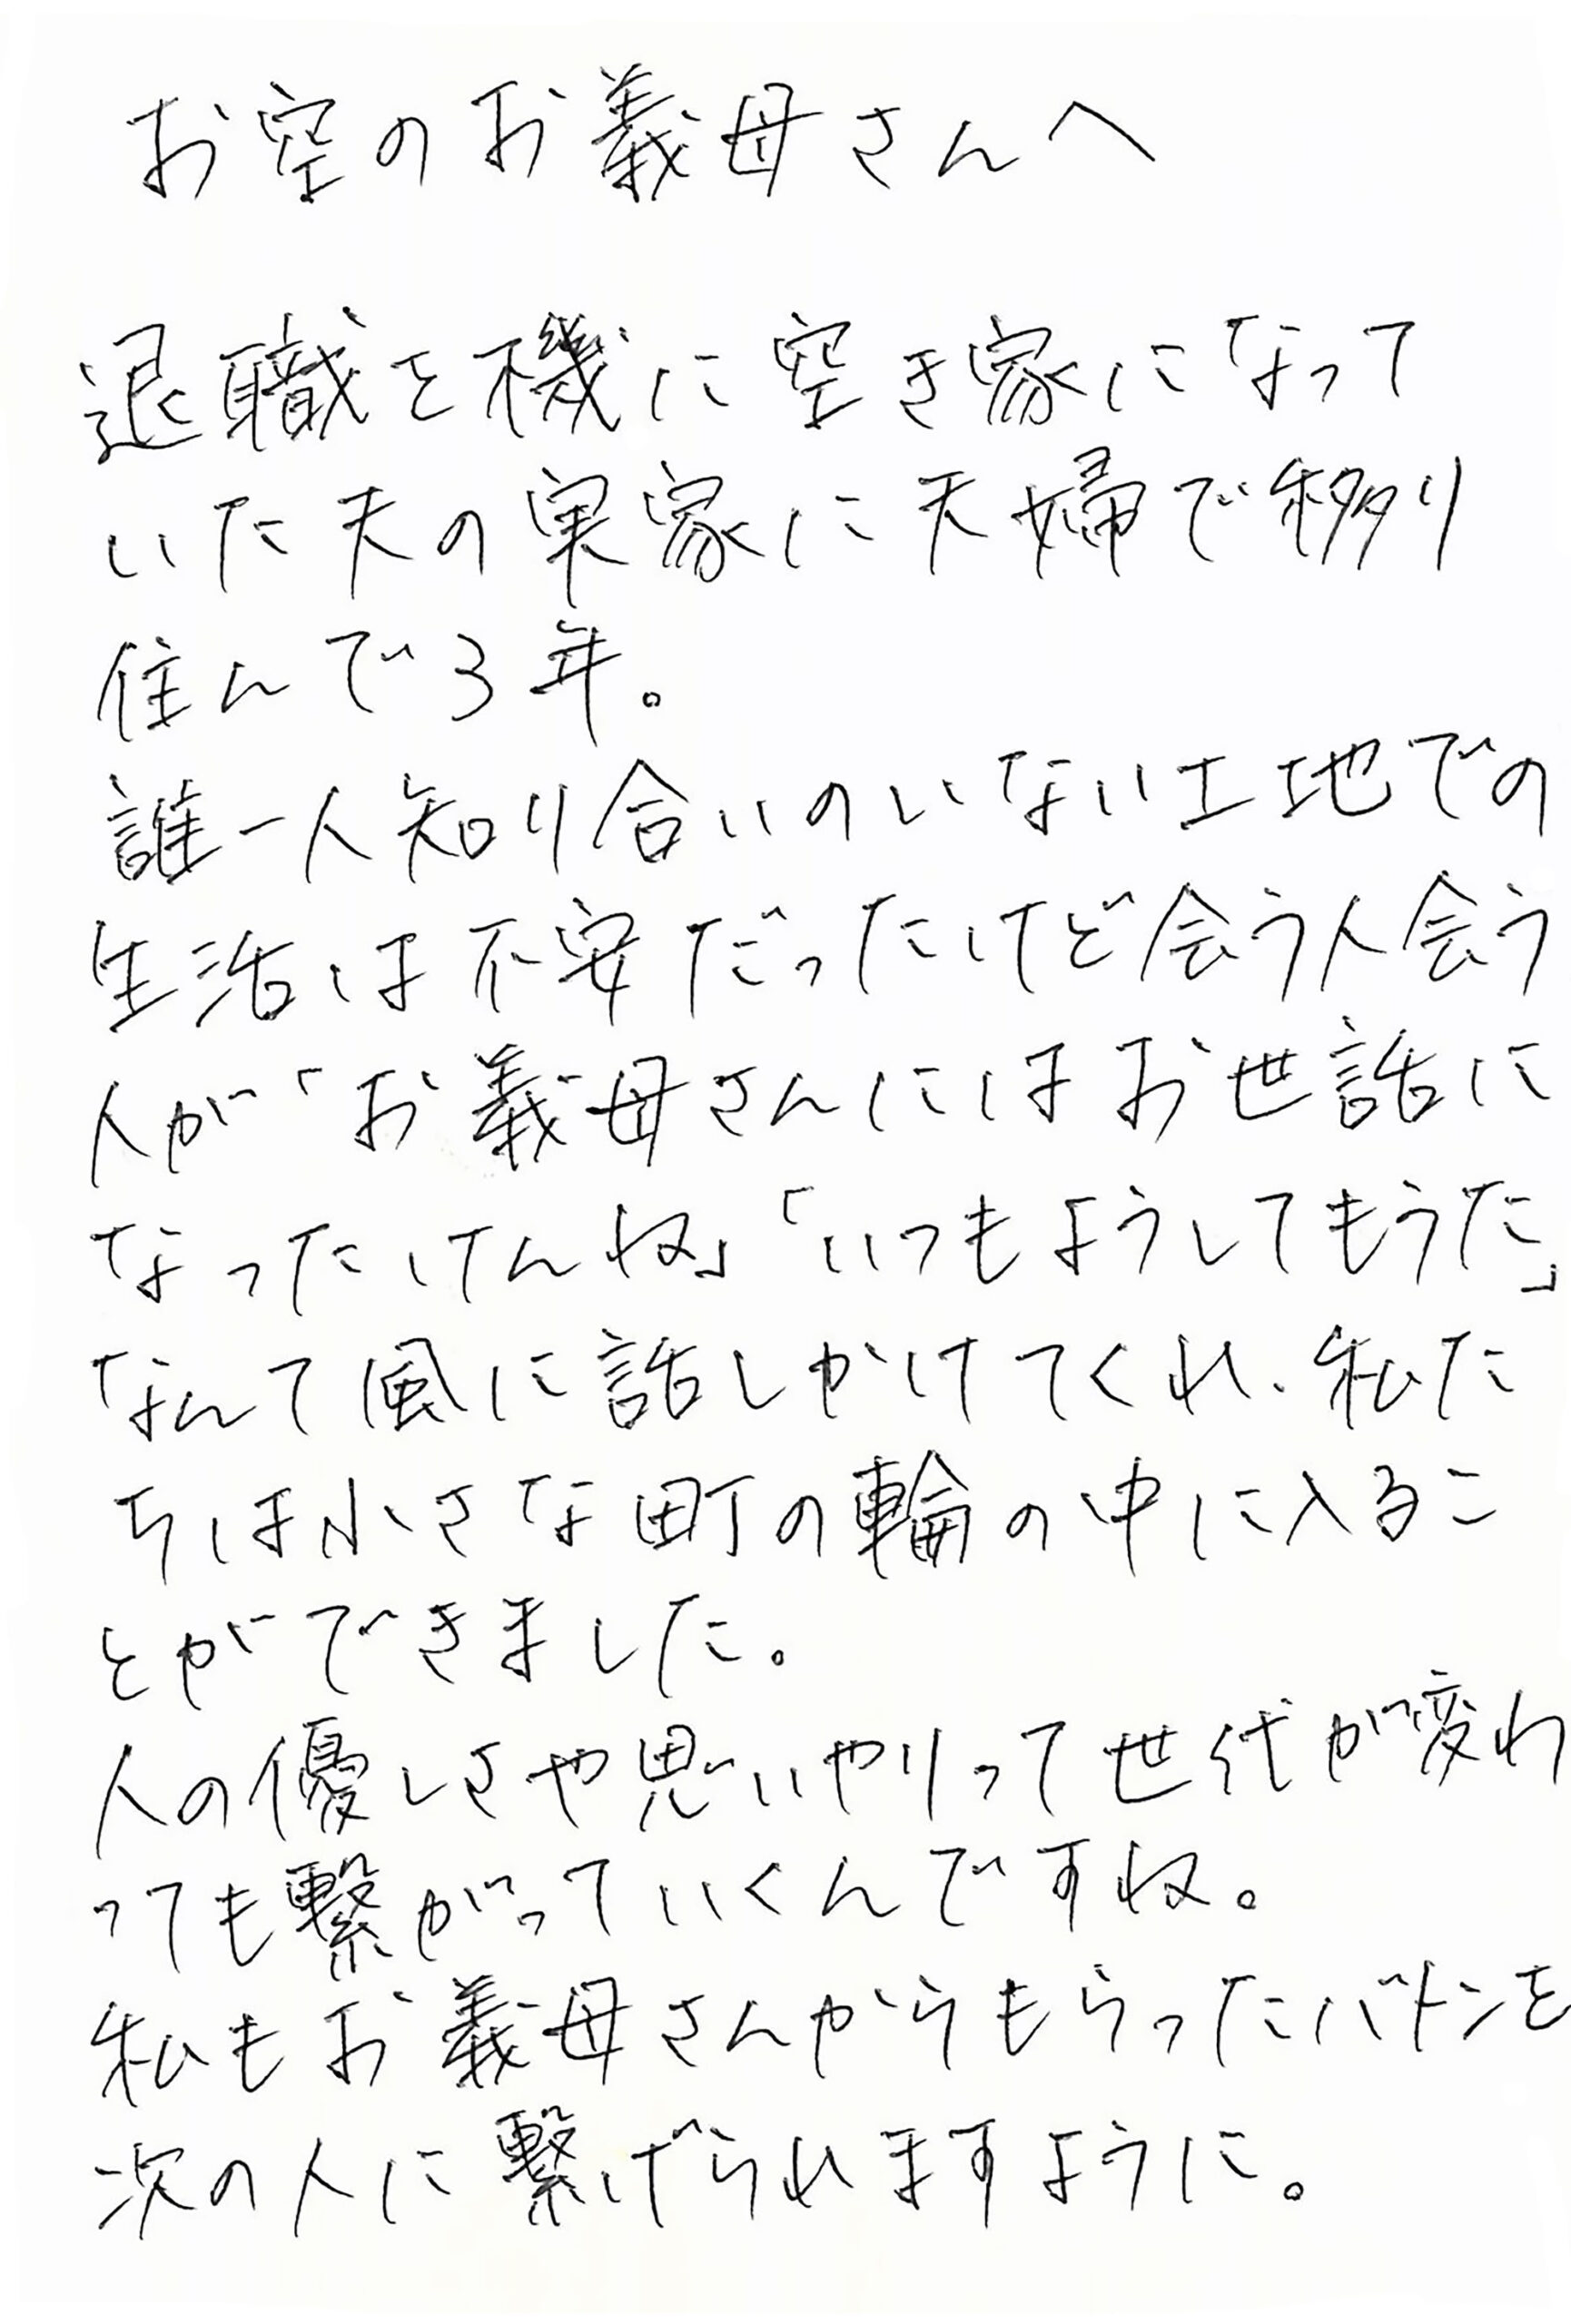 お空のお義母さんへ
退職を機に空き家になって
いた夫の実家に夫婦で移り
住んで3年。
誰一人知り合いのいない土地での
生活は不安だったけど会う人会う
人が「お義母さんにはお世話に
なったけんね」「いつもようしてもうた」
なんて風に話しかけてくれ、私た
ちは小さな町の輪の中に入るこ
とができました。
人の優しさや思いやりって世代が変わ
っても繋がっていくんですね。
私もお義母さんからもらったバトンを
次の人に繋げられますように。